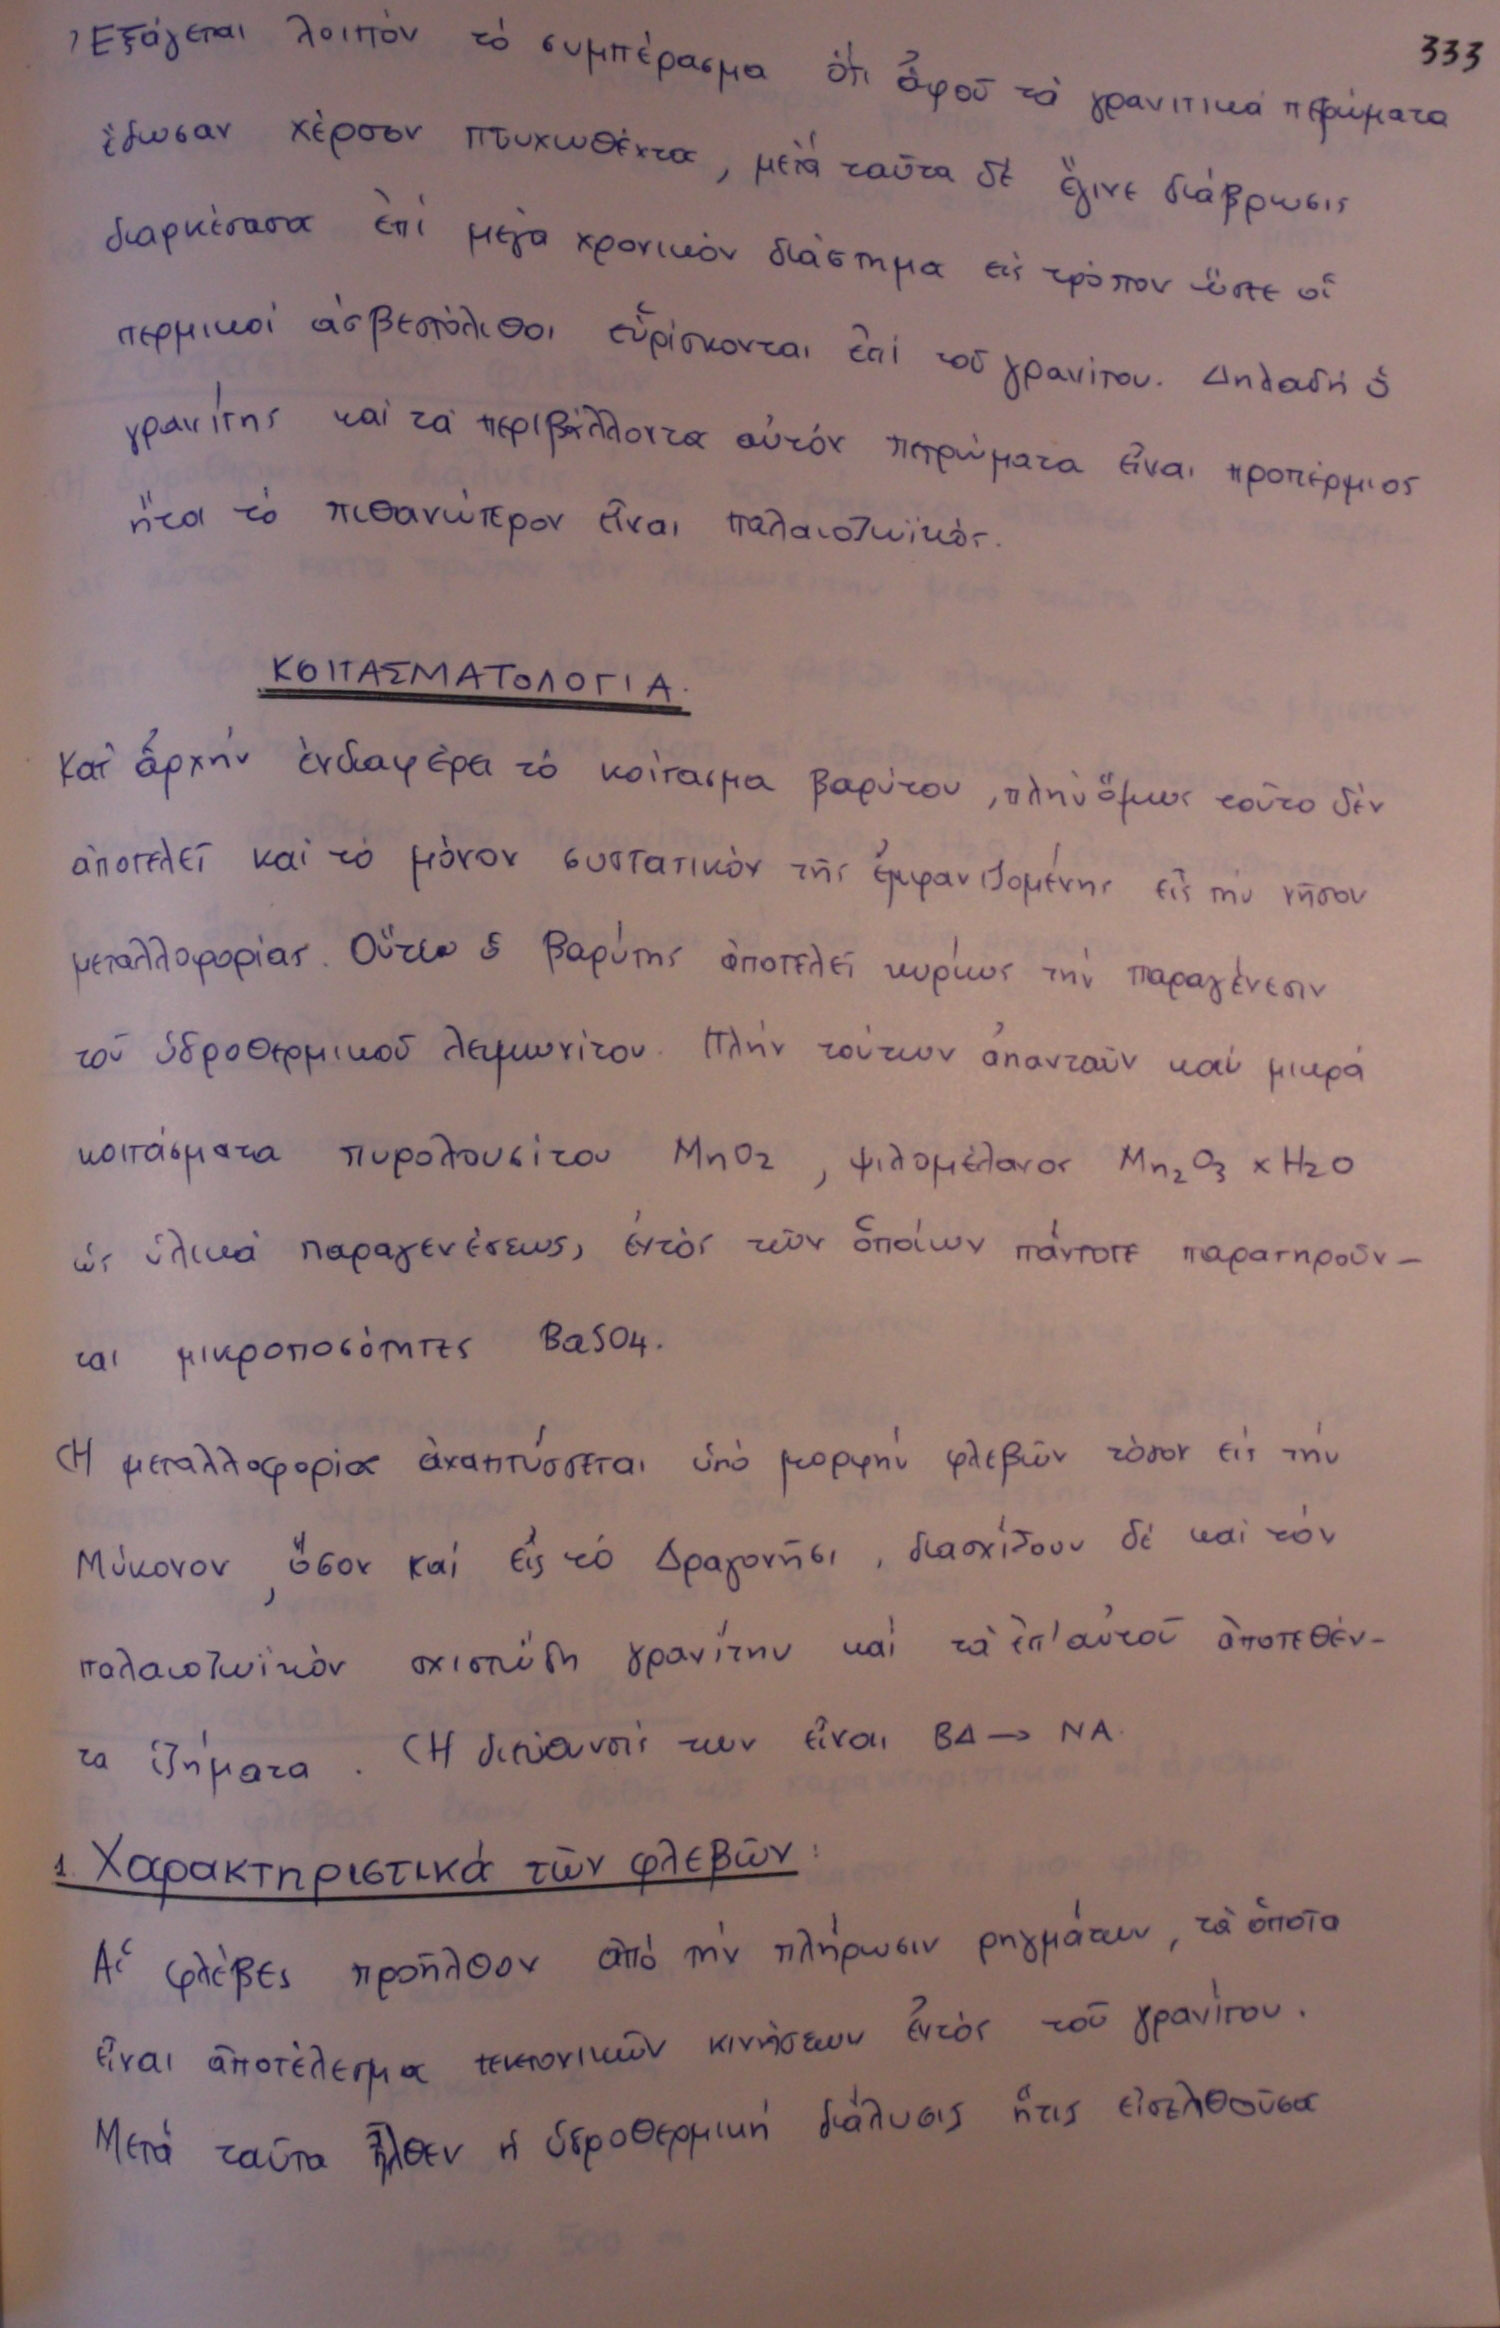 333
Ἐξάγεται λοιπόν τό συμπέρασμα ὅτι ἀφοῦ τά γρανιτικά πετρώματα
ἔδωσαν χέρσον πτυχωθέντα, μετά ταῦτα δέ ἔγινε διάβρωσις
διαρκέσασα ἐπί μέγα χρονικόν διάστημα εἰς τρόπον ὥστε οἱ
περμικοί ἀσβεστόλιθοι εὑρίσκονται ἐπί τοῦ γρανίτου. Δηλαδή ὁ
γρανίτης καί τά περιβάλλοντα αὐτόν πετρώματα εἶναι προπέρμιος
ἤτοι τό πιθανώτερον εἶναι παλαιοζωϊκός.
ΚΟΙΤΑΣΜΑΤΟΛΟΓΙΑ.
Κατ' ἀρχήν ἐνδιαφέρει τό κοίτασμα βαρύτου, πλήν ὅμως τοῦτο δέν
ἀποτελεῖ καί τό μόνον συστατικόν τῆς ἐμφανιζομένης εἰς τήν νῆσον
μεταλλοφορίας. Οὕτω ὁ βαρύτης ἀποτελεῖ κυρίως τήν παραγένεσιν
τοῦ ὑδροθερμικοῦ λειμωνίτου. Πλήν τούτων ἀπαντοῦν καί μικρά
κοιτάσματα πυρολουσίτου MnO2, ψιλομέλανος Mn2O3 x H2O
ὡς ὑλικά παραγενέσεως, ἐντός τῶν ὁποίων πάντοτε παρατηροῦν-
ται μικροποσότητες BaSO4.
Ἡ μεταλλοφορία ἀναπτύσσεται ὑπό μορφήν φλεβῶν τόσον εἰς τήν
Μύκονον, ὅσον καί εἰς τό Δραγονῆσι, διασχίζουν δέ καί τόν
παλαιοζωϊκόν σχιστώδη γρανίτην καί τά ἐπ' αὐτοῦ ἀποτεθέν-
τα ἱζήματα. Ἡ διεύθυνσίς των εἶναι ΒΔ → ΝΑ.
1. Χαρακτηριστικά τῶν φλεβῶν:
Αἱ φλέβες προῆλθον ἀπό τήν πλήρωσιν ρηγμάτων, τά ὁποῖα
εἶναι ἀποτέλεσμα τεκτονικῶν κινήσεων ἐντός τοῦ γρανίτου.
Μετά ταῦτα ἦλθεν ἡ ὑδροθερμική διάλυσις ἥτις εἰσελθοῦσα